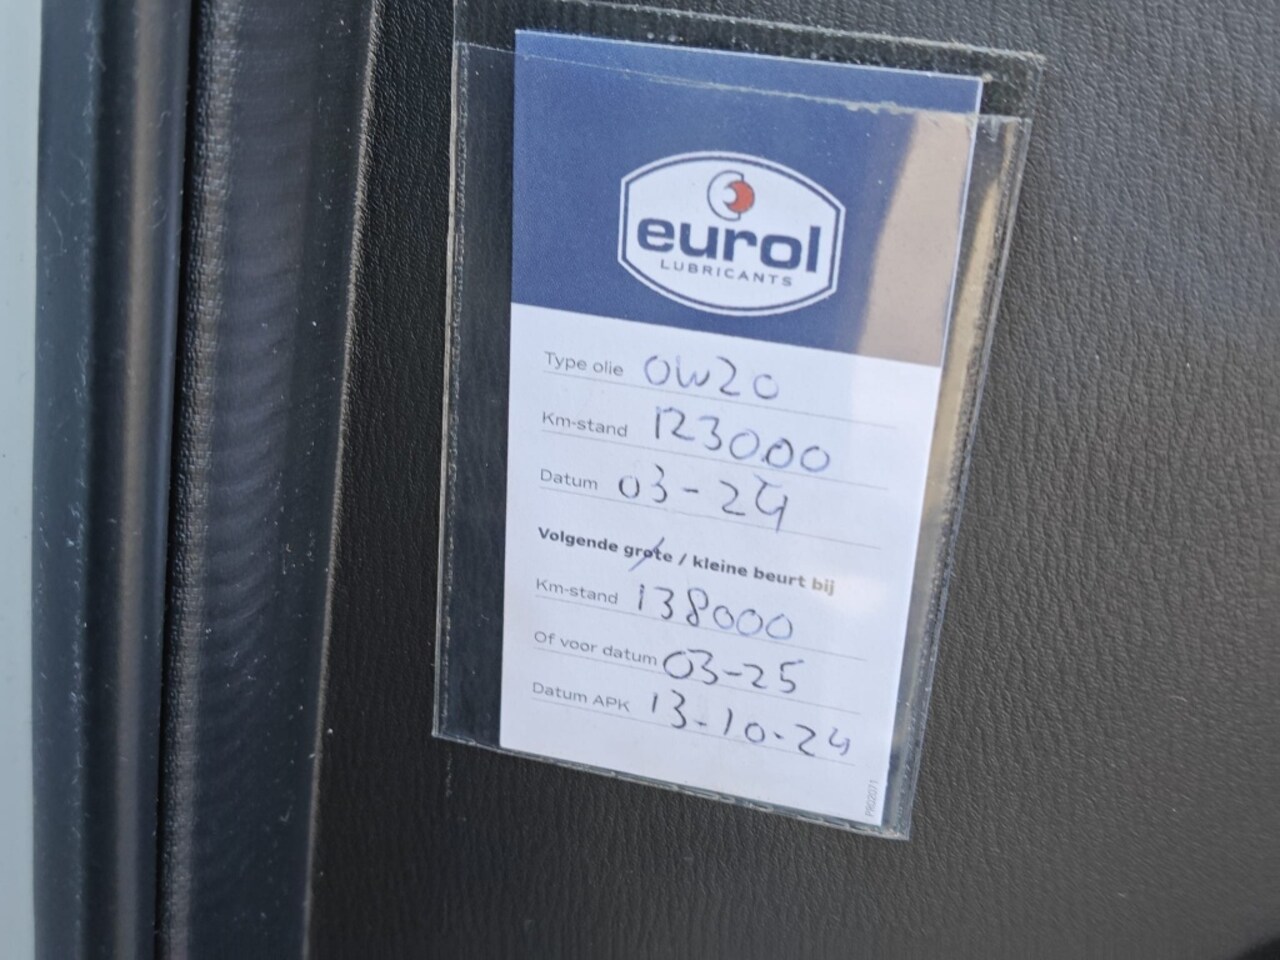 eurol
LUBRICANTS
Type olie 0W20
Km-stand 123000
Datum 03-24
Volgende grote / kleine beurt bij
Km-stand 138000
Of voor datum 03-25
Datum APK 13-10-24
P902071